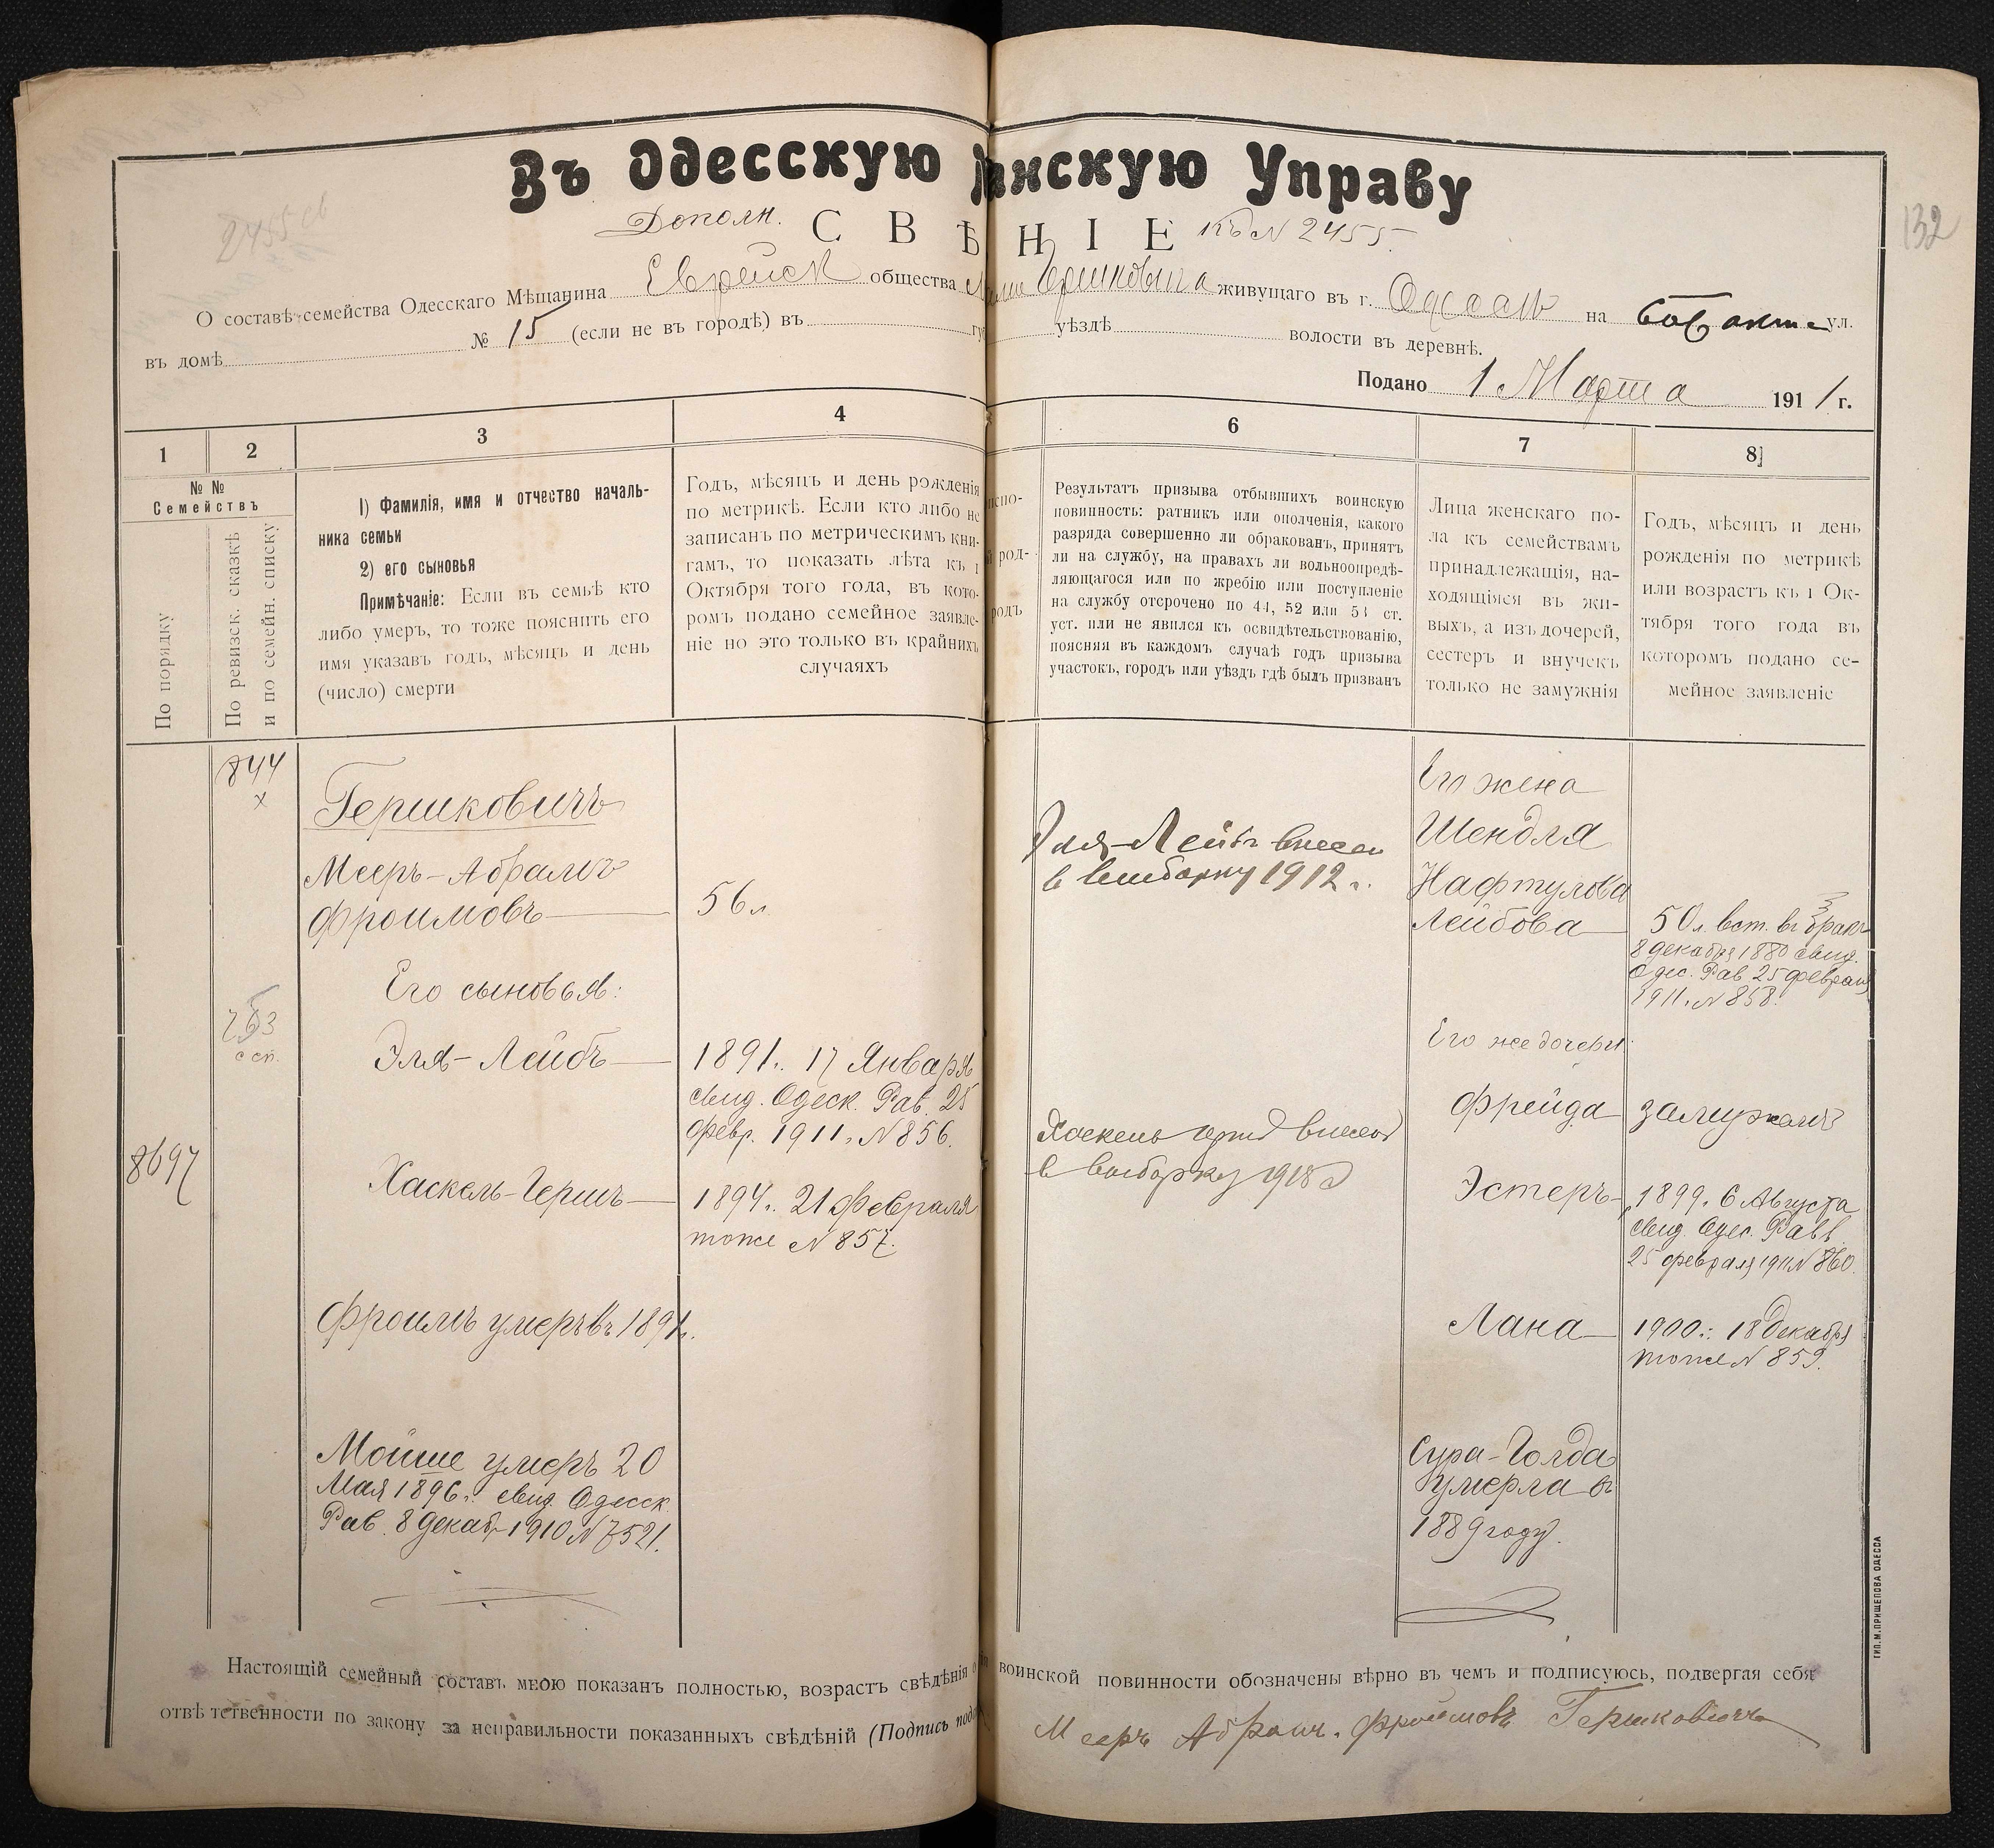 132
Въ Одесскую нскую Управу
2455
Дополн. СВѢ НІЕ къ № 2455.
О составѣ семейства Одесскаго Мѣщанина Еврейск общества Гершковича живущаго въ г. Одессѣ на ул.
въ домѣ № 15 (если не въ городѣ) въ уѣздѣ волости въ деревнѣ.
Подано 1 Марта 1911 г.
1 2 3 4 6 7 8
№ №
Семействъ
По порядку
По ревизск. сказкѣ
и по семейн. списку
1) Фамилія, имя и отчество началь-
ника семьи
2) его сыновья
Примѣчаніе: Если въ семьѣ кто
либо умеръ, то тоже пояснить его
имя указавъ годъ, мѣсяцъ и день
(число) смерти
Годъ, мѣсяцъ и день рожденія
по метрикѣ. Если кто либо не
записанъ по метрическимъ кни-
гамъ, то показать лѣта къ 1
Октября того года, въ кото-
ромъ подано семейное заявле-
ніе но это только въ крайнихъ
случаяхъ
Результатъ призыва отбывшихъ воинскую
повинность: ратникъ или ополченія, какого
разряда совершенно ли обракованъ, принятъ
ли на службу, на правахъ ли вольноопредѣ-
ляющагося или по жребію или поступленіе
на службу отсрочено по 44, 52 или 51 ст.
уст. или не явился къ освидѣтельствованію,
поясняя въ каждомъ случаѣ годъ призыва
участокъ, городъ или уѣздъ гдѣ былъ призванъ
Лица женскаго по-
ла къ семействамъ
принадлежащія, на-
ходящіяся въ жи-
выхъ, а изъ дочерей,
сестеръ и внучекъ
только не замужнія
Годъ, мѣсяцъ и день
рожденія по метрикѣ
или возрастъ къ 1 Ок-
тября того года въ
которомъ подано се-
мейное заявленіе
844
х
Гершковичъ
Мееръ-Абрамъ
Фроимовъ 56 л
Его сыновья:
763
с сп.
Эля-Лейбъ 1891 г. 17 Января
свид. Одеск. Рав. 25
февр. 1911 г. № 856.
8697
Хаскель-Гершъ 1894 г. 21 Февраля
тоже № 857.
Фроимъ умеръ въ 1891 г.
Мойше умеръ 20
Мая 1896 г. свид. Одесск.
Рав. 8 декаб. 1910 № 7521.
Эля-Лейбъ внесен
в выборку 1912 г.
Хаскель Герш внесен
в выборку 1918
Его жена
Шендля
Нафтулова
Лейбова 50 л. вст. въ бракъ
8 декабря 1880 свид.
Одес. Рав 25 февраля
1911 г. № 858.
Его же дочери:
Фрейда замужемъ
Эстеръ 1899 г. 6 Августа
свид. Одес. Равв.
25 февраля 1911 № 860.
Лана 1900 г. 18 Декабря
тоже № 859.
Сура-Голда
умерла въ
1889 году.
Настоящій семейный составъ мною показанъ полностью, возрастъ свѣдѣнія о воинской повинности обозначены вѣрно въ чемъ и подписуюсь, подвергая себя
отвѣтственности по закону за неправильности показанныхъ свѣдѣній (Подпись
Мееръ Абрамъ Фроимовъ Гершковичъ
ТИП. М. ПРИЩЕПОВА ОДЕССА